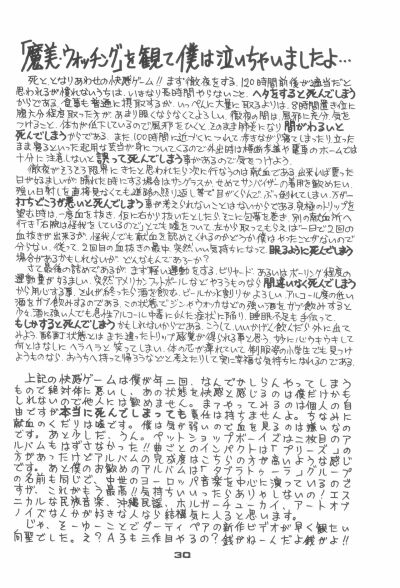 「魔美ウォッチング」を観て僕は泣いちゃいましたよ…
死ととなりあわせの快感ゲーム!! まず徹夜をする。120時間前後が適当だと
思われるが慣れないうちは、いきなり長時間やりないこと。ヘタをすると死んでしまう
からである。食事も普通に摂取するが、いっぺんに大量に取るよりは、8時間置き位に
腹六分程度取った方が、あまり眠くならなくてよろしい。徹夜の間は、風邪に充分、気を
つけること。体力が低下しているので風邪をひくと、そのまま肺炎になり間がわるいと
死んでしまうからである。また100時間に近づくと、ついつい、歩きながら寝てしまったり立った
まま寝るといった起用な芸当が身についてくるので外出時は横断歩道や電車のホームでは
十分に注意しないと誤って死んでしまう事があるので気をつけよう。
徹夜がそろそろ限界にきたと思われたら次に行なうのは献血である。出来れば曇った
日が好ましいが晴れた時にする場合はサングラスか、せめてサンバイザーの着用を勧めたい。
強い日射しを直接見なくても道路の照り返し等で目がくらんで、ぶっ倒れてしまい、万が一
打ちどころが悪いと死んでしまう事が考えられないことはないからである。究極のトリップを
望む時は一度血を抜き、仮に右から抜いたとしたらそこに包帯を巻き、別の献血所へ
行き「右腕は怪我をしているので」とでも嘘をついて左から取ってもらえば一日で2回の
血抜きが出来るが、怪我人でも献血を認めてくれるのかどうか僕はやったことがないので
分らない。従って、2回目の血抜きの最中、突然いい気持ちになって眠るように死んでしまう
場合があるかもしれないが、どんなもんであろーか?
さて最後の詰めであるが、まず軽い運動をする。ビリヤードあるいはボーリング程度の
運動量が好ましい。突然アメリカンフットボールなどやろうものなら間違いなく死んでしまう
から用心する事。とどめが刺ったら酒を飲む。ビール、水割りがよろしい。アルコール度の低い
酒をガブ飲みするのである。この状態でジンやウォッカなどの強い酒をガブ飲みすると
少々酒に強い人でも急性アルコール中毒に似た症状に陥り、睡眠不足も手伝って、
もしかすると死んでしまうかもしれないからである。こうして、いいかげん飲んだら外に出て
みよう。酩酊状態とはまた違ったトリップ感覚が得られる事と思う。妙に心ウキウキして
何とはなしに、ヘラヘラっと笑ってしまい、体の芯が痺れていて、制服姿の小学生でも見つけ
ようものなら、おうちへ持って帰ろうなどと考えたりして実に幸福な気持ちになれるのである。
上記の快感ゲームは僕が年二回、なんでかしらんやってしまう
もので絶対体に悪いし、あの状態を快感と感じるのは僕だけかも
しれないので他人には勧めません。まァやってみるのは個人の自
由ですが本当に死んでしまっても責任は持ちませんよ。ちなみに
献血のくだりは嘘です。僕は気が弱いので血を見るのは嫌いなの
です。あと少しだ、うん。ペットショップボーイズは二枚目のアル
バムもはずさなかった!! 曲ごとのインパクトは「プリーズ」の
方があったけどアルバムの完成度はこちらの方が高いような感じ
です。あと僕のお勧めのアルバムは「タブラトゥーラ」グループ
の名前も同じで、中世のヨーロッパ音楽を中心に演っているので
すが、これがもう最高!! 気持ちいいったらありゃしないの!エス
ニカルな民族音楽、沖縄民謡、ホルガーチューカイ、アートオブ
ノイズなんかが好きな人なら結構気に入ると思います。
じゃ、そーゆーことでダーティペアの新作ビデオが早く観たい
向聖でした。え?A3も三作目やるの?銭がねーんだよ銭がよ!!
30